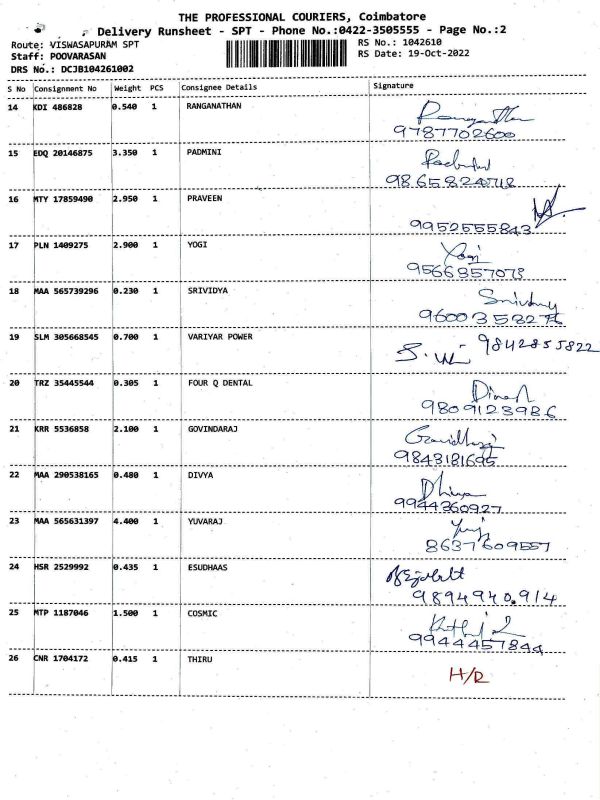 THE PROFESSIONAL COURIERS, Coimbatore
Delivery Runsheet - SPT - Phone No.:0422-3505555 - Page No.:2
Route: VISWASAPURAM SPT
RS No.: 1042610
Staff: POOVARASAN
RS Date: 19-Oct-2022
DRS No.: DCJB104261002
S No Consignment No Weight PCS Consignee Details Signature
14 KDI 486828 0.540 1 RANGANATHAN
9787702600
15 EDQ 20146875 3.350 1 PADMINI
9865824718
16 MTY 17859490 2.950 1 PRAVEEN
9952555843
17 PLN 1409275 2.900 1 YOGI Yogi
9566857078
18 MAA 565739296 0.230 1 SRIVIDYA
9600358276
19 SLM 305668545 0.700 1 VARIYAR POWER 9842855822
20 TRZ 35445544 0.305 1 FOUR Q DENTAL
9809123986
21 KRR 5536858 2.100 1 GOVINDARAJ
9843181695
22 MAA 290538165 0.480 1 DIVYA Dhivya
9944360927
23 MAA 565631397 4.400 1 YUVARAJ
8637609557
24 HSR 2529992 0.435 1 ESUDHAAS
9894940914
25 MTP 1187046 1.500 1 COSMIC
9944457844
26 CNR 1704172 0.415 1 THIRU H/R